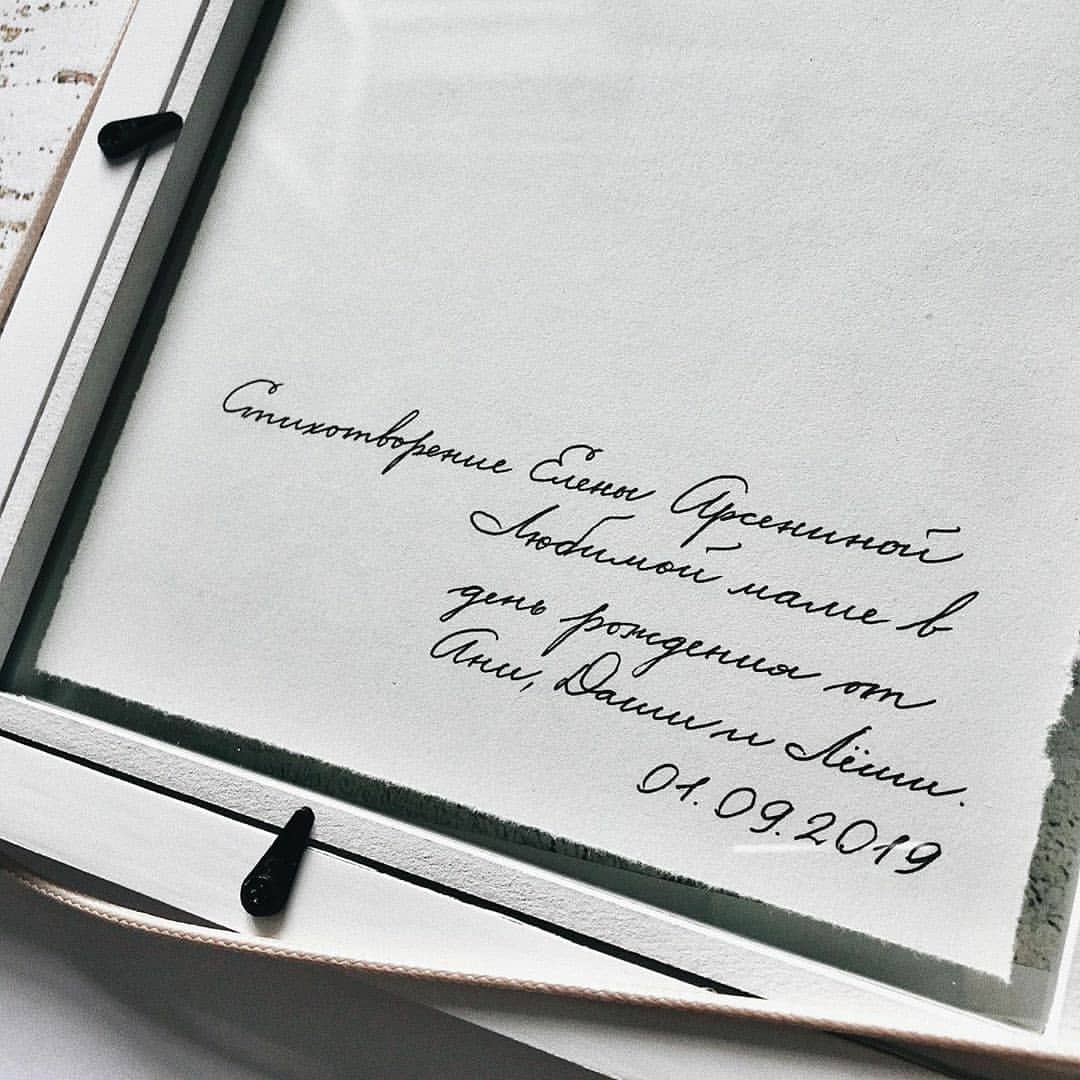 Стихотворение Елены Арсениной
Любимой маме в
день рождения от
Ани, Даши и Лёши.
01.09.2019